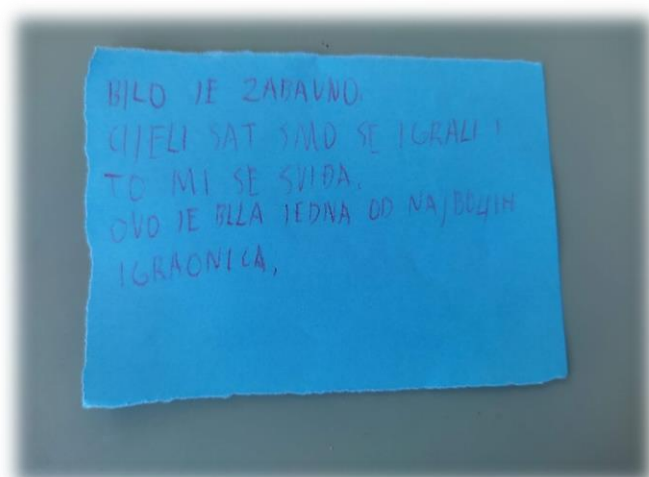 BILO JE ZABAVNO.
CIJELI SAT SMO SE IGRALI I
TO MI SE SVIĐA.
OVO JE BILA JEDNA OD NAJBOLJIH
IGRAONICA.